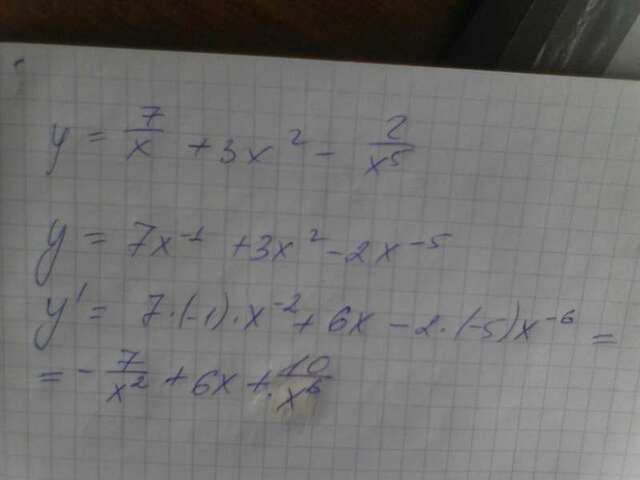 y = 7/x + 3x² - 2/x⁵
y = 7x⁻¹ + 3x² - 2x⁻⁵
y' = 7·(-1)·x⁻² + 6x - 2·(-5)x⁻⁶ =
= - 7/x² + 6x + 10/x⁶